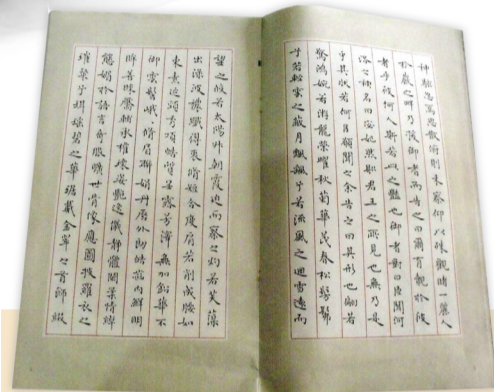 神駭忽焉思散俯則未察仰以殊觀睹一麗人
於巖之畔乃援御者而告之曰爾有覿於彼
者乎彼何人斯若此之豔也御者對曰臣聞河
洛之神名曰宓妃然則君王之所見也無乃是
乎其狀若何臣願聞之余告之曰其形也翩若
驚鴻婉若游龍榮曜秋菊華茂春松髣髴
兮若輕雲之蔽月飄飄兮若流風之迴雪遠而
望之皎若太陽升朝霞迫而察之灼若芙蕖
出淥波襛纖得衷脩短合度肩若削成腰如
束素延頸秀項皓質呈露芳澤無加鉛華不
御雲髻峨峨脩眉聯娟丹脣外朗皓齒內鮮明
眸善睞靨輔承權瓌姿豔逸儀靜體閑柔情綽
態媚於語言奇服曠世骨像應圖披羅衣之
璀粲兮珥瑤碧之華琚戴金翠之首飾綴